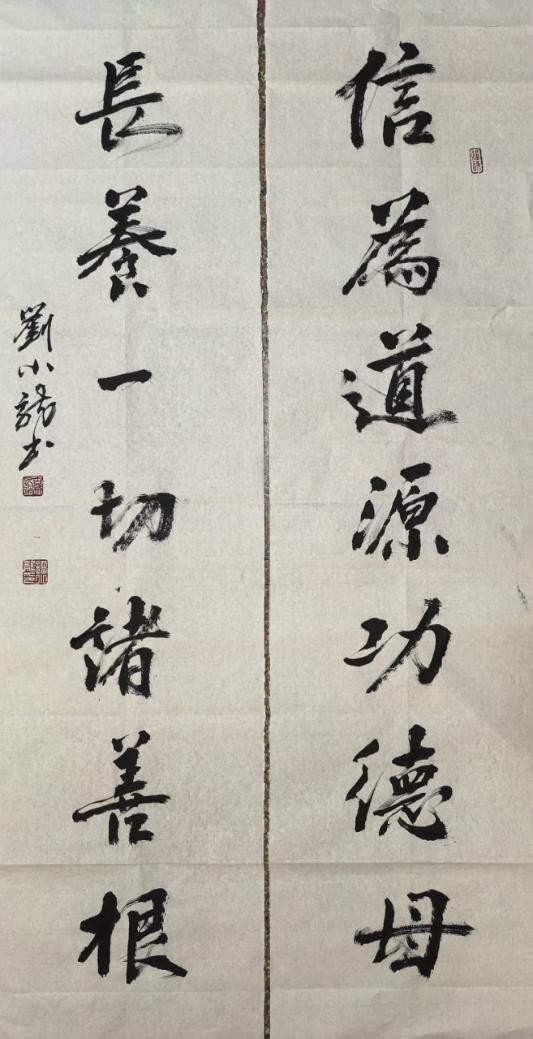 信為道源功德母
長養一切諸善根
劉小龍書